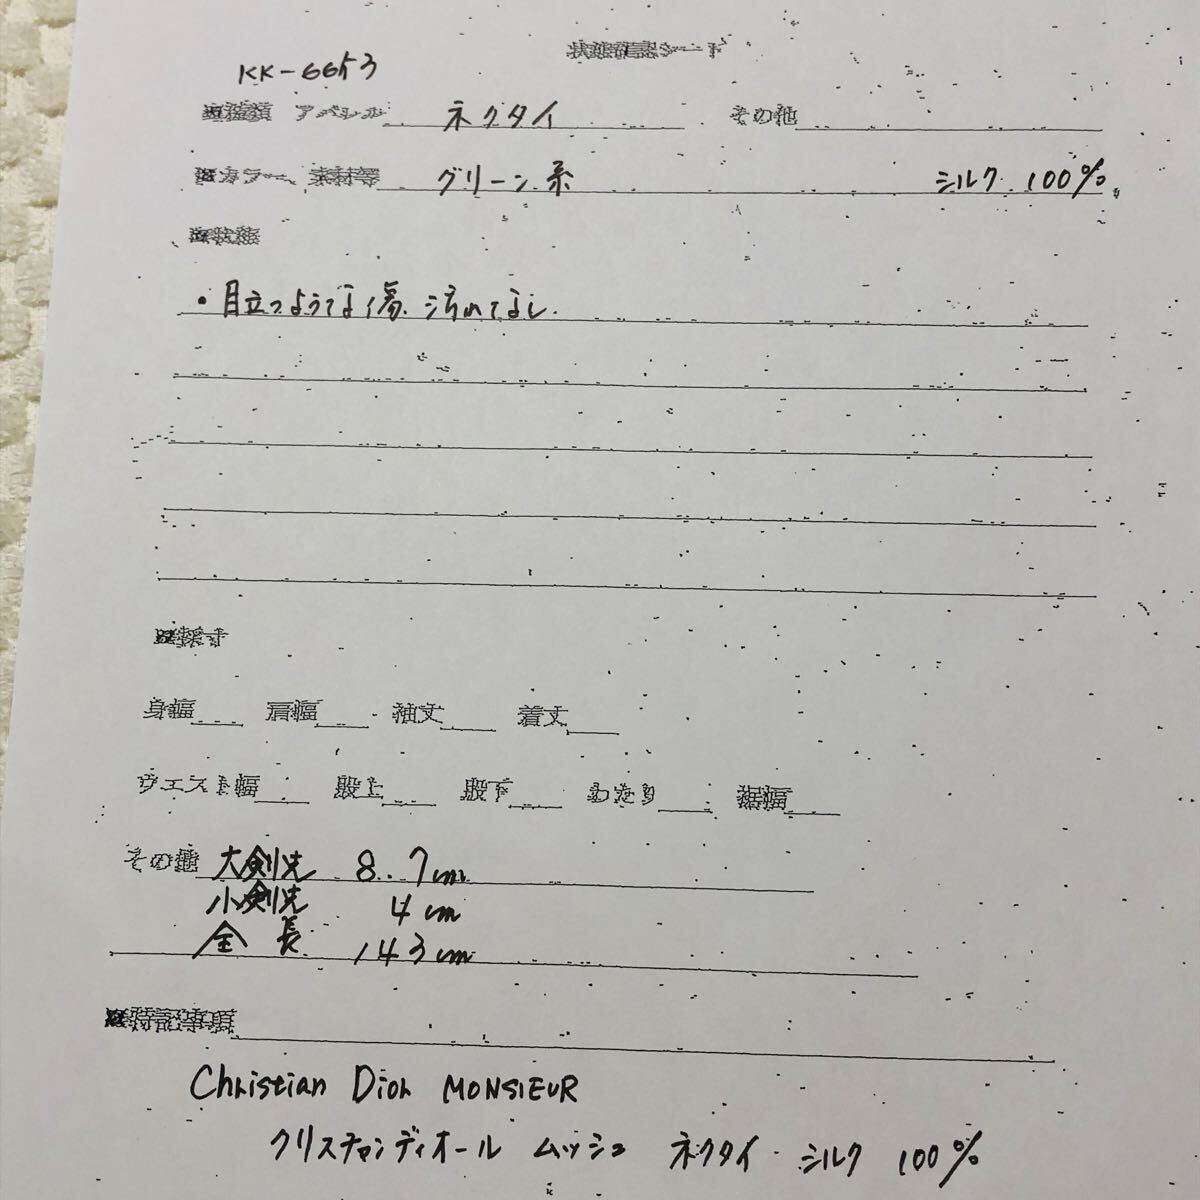 状態確認シート
KK-6653
■種類 アパレル ネクタイ その他
■カラー、素材等 グリーン系 シルク 100%
■状態
・目立つような傷、汚れなし.
■採寸
身幅 肩幅 袖丈 着丈
ウエスト幅 股上 股下 わたり 裾幅
その他 大剣先 8.7cm
小剣先 4cm
全長 143cm
■特記事項
Christian Dior MONSIEUR
クリスチャンディオール ムッシュ ネクタイ シルク 100%